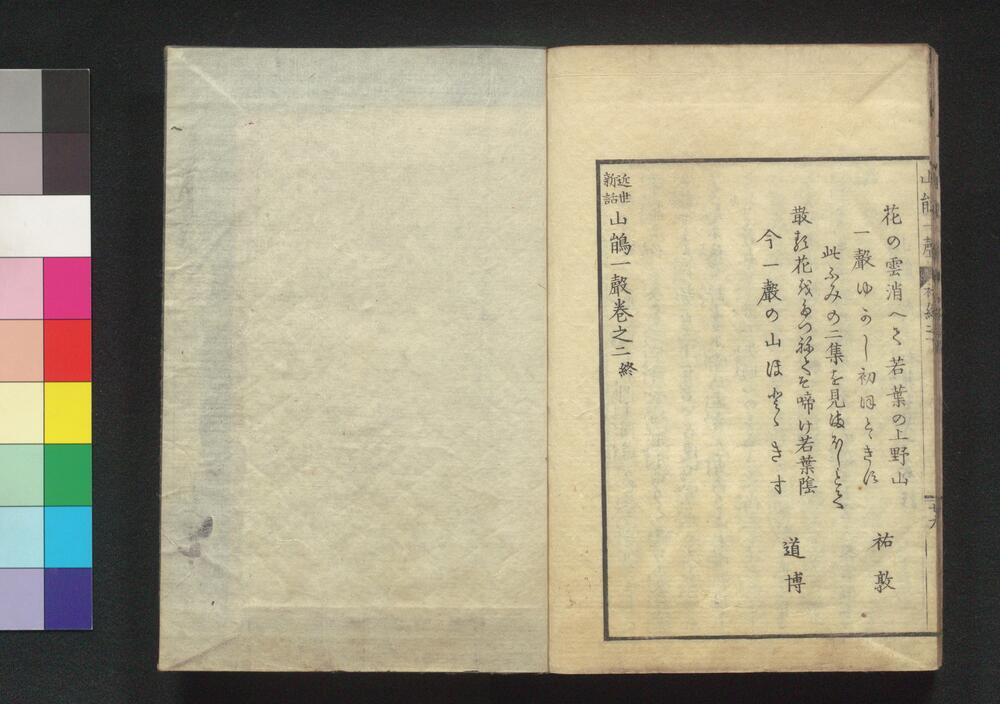 山鵲一聲
花の雲消へて若葉の上野山
一聲ゆかし初ほとゝきす
祐敦
此ふみの二集を見はへりて
散る花をたつねてそ啼け若葉陰
今一聲の山ほとゝきす
道博
近世新話 山鵲一聲卷之二終